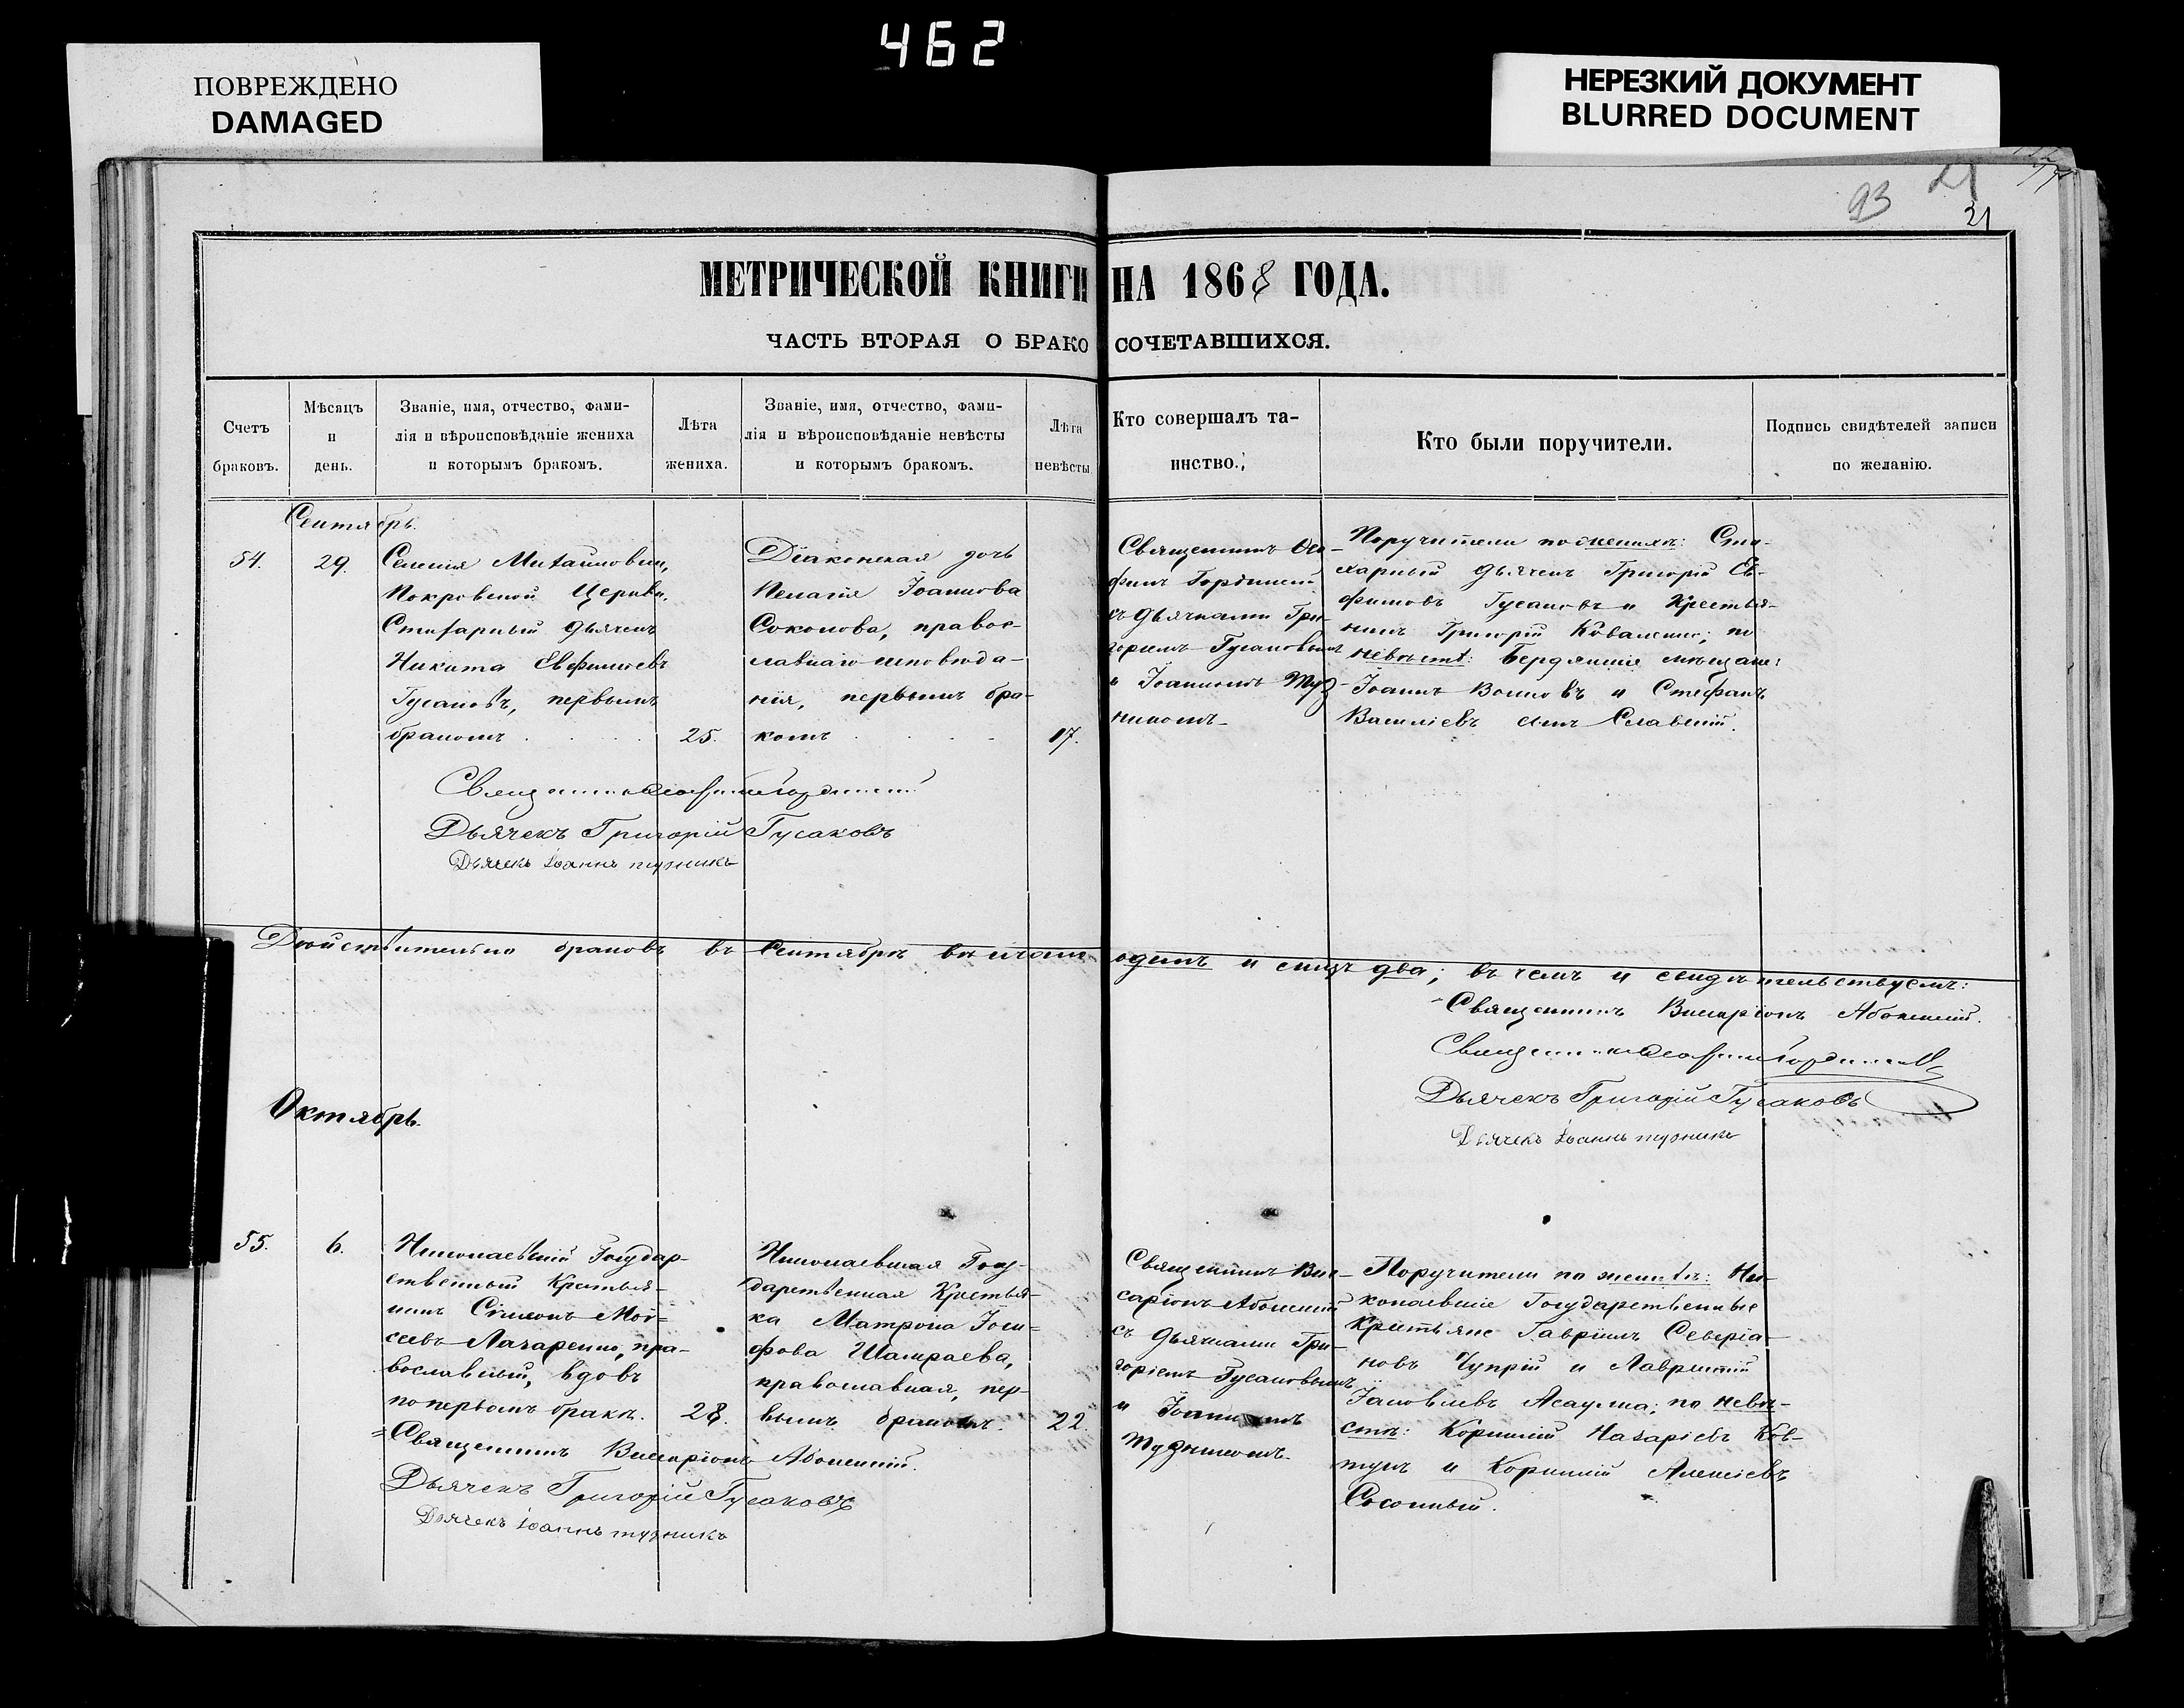 462
ПОВРЕЖДЕНО
DAMAGED
НЕРЕЗКИЙ ДОКУМЕНТ
BLURRED DOCUMENT
93
21
21
МЕТРИЧЕСКОЙ КНИГИ НА 1868 ГОДА.
ЧАСТЬ ВТОРАЯ О БРАКОСОЧЕТАВШИХСЯ.
Счетъ
браковъ.
Мѣсяцъ
и
день.
Званіе, имя, отчество, фами-
лія и вѣроисповѣданіе жениха
и которымъ бракомъ.
Лѣта
жениха.
Званіе, имя, отчество, фами-
лія и вѣроисповѣданіе невѣсты
и которымъ бракомъ.
Лѣта
невѣсты
Кто совершалъ та-
инство.
Кто были поручители.
Подпись свидѣтелей записи
по желанію.
Сентябрь.
54.
29.
Селенія Михайловки,
Покровской Церкви,
Стихарный дьячекъ
Никита Евфимовъ
Гусаковъ, первымъ
бракомъ
25.
Діаконская дочь
Пелагія Іоаннова
Соколова, право-
славнаго исповѣда-
нія, первымъ бра-
комъ
17.
Священникъ Ѳео-
филъ Гординскій
съ дьячками Гри-
горіемъ Гусаковымъ
и Іоанномъ Туз-
никомъ
Поручители по женихѣ: Сти-
харный дьячекъ Григорій Ев-
фимовъ Гусаковъ и Крестья-
нинъ Григорій Коваленко; по
невѣстѣ: Бердянскіе мѣщане:
Іоаннъ Волковъ и Стефанъ
Василіевъ Славскій.
Дьячекъ Григорій Гусаковъ
Дьячекъ Іоаннъ Тузникъ
Дѣйствительно браковъ въ Сентябрѣ вѣнчано одинъ и лицъ два; въ чемъ и свидѣтельствуемъ:
Священникъ Виссаріонъ Абонскій.
Дьячекъ Григорій Гусаковъ
Дьячекъ Іоаннъ Тузникъ
Октябрь.
55.
6.
Николаевскій Государ-
ственный Крестья-
нинъ Сѵмеонъ Мої-
сеевъ Лазаренко, пра-
вославный, вдовъ
по первомъ бракѣ.
28.
Николаевская Госу-
дарственная Крестья-
ка Матрона Іоси-
фова Шамраева,
православная, пер-
вымъ бракомъ.
22.
Священникъ Вис-
саріонъ Абонскій
съ дьячками Гри-
горіемъ Гусаковымъ
и Іоанномъ
Тузникомъ.
Поручители по женихѣ: Ни-
колаевскіе Государственные
Крестьяне Гавріилъ Северіа-
новъ Чупрій и Лаврентій
Іаковлевъ Асаулка; по невѣ-
стѣ: Корнилій Назаріевъ Ков-
тунъ и Корнилій Алексіевъ
Сосонный.
Священникъ Виссаріонъ Абонскій.
Дьячекъ Григорій Гусаковъ
Дьячекъ Іоаннъ Тузникъ